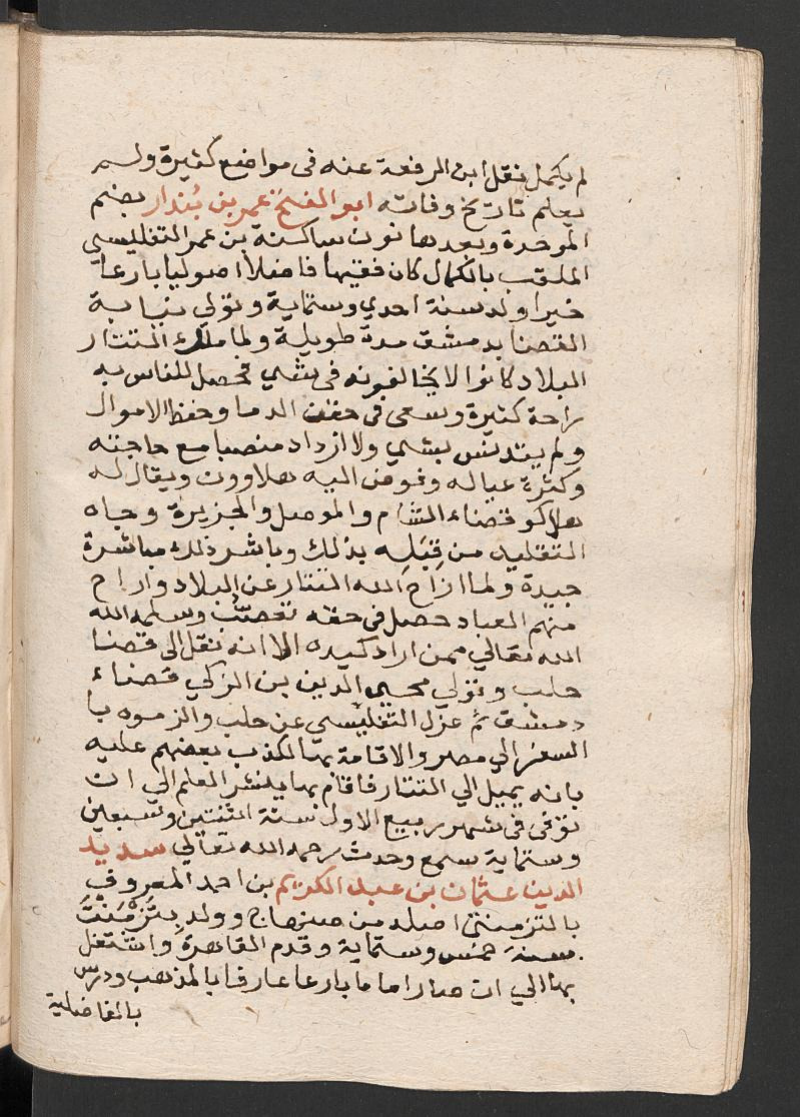 لم يكمل نقل ابن الرفعة عنه فى مواضع كثيرة ولم
يعلم تاريخ وفاته ابو الفتح عمر بن بُندار بضم
الموحدة وبعدها نون ساكنة بن عمر التفليسي
الملقب بالكمال كان فقيها فاضلا اصوليا بارعا
خيرا ولد سنة احدي وستماية وتولي نيابة
القضا بدمشق مدة طويلة ولما ملك التتار
البلاد كانوا لا يخالفونه فى شي فحصل للناس به
راحة كثيرة وسعى فى حقن الدما وحفظ الاموال
ولم يتدنس بشي ولا ازداد منصبا مع حاجته
وكثرة عياله وفوض اليه هلاوون ويقال له
هلاكو قضاء الشام والموصل والجزيرة وجاه
التقليد من قِبَلِه بذلك وباشر ذلك مباشرة
جيدة ولما ازاح الله التتار عن البلاد واراح
منهم العباد حصل فى حقه تعصبٌ وسلمه الله
الله تعالي ممن اراد كيده الا انه نقل الى قضا
حلب وتولي محيي الدين بن الزكي قضاء
دمشق ثم عزل التفليسي عن حلب والزموه با
السفر الي مصر والاقامة بها لكذب بعضهم عليه
بانه يميل الي التتار فاقام بها ينشر العلم الي ان
توفى فى شهر ربيع الاول سنة اثنتين وسبعين
وستماية سمع وحدث رحمه الله تعالي سديد
الدين عثمان بن عبد الكريم بن احمد المعروف
بالتزمنتي اصله من صنهاج وولد بتَزْمَنْتَ
سنة خمس وستماية وقدم القاهرة واشتغل
بها الي ان صار اماما بارعا عارفا بالمذهب ودرس
بالفاضلية